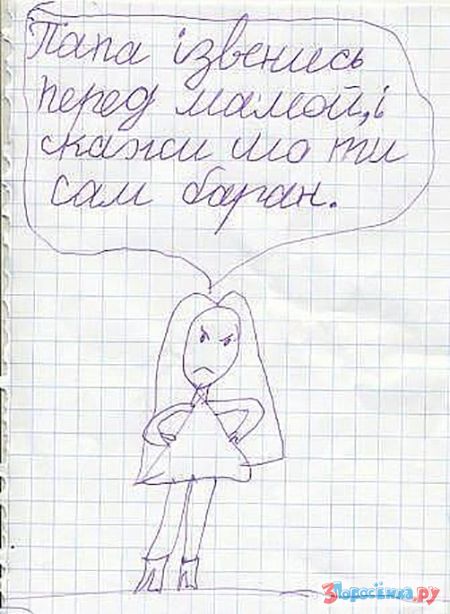 Папа ізвенись
перед мамой, і
скажи шо ти
сам баран.
3Поросёнка.ру